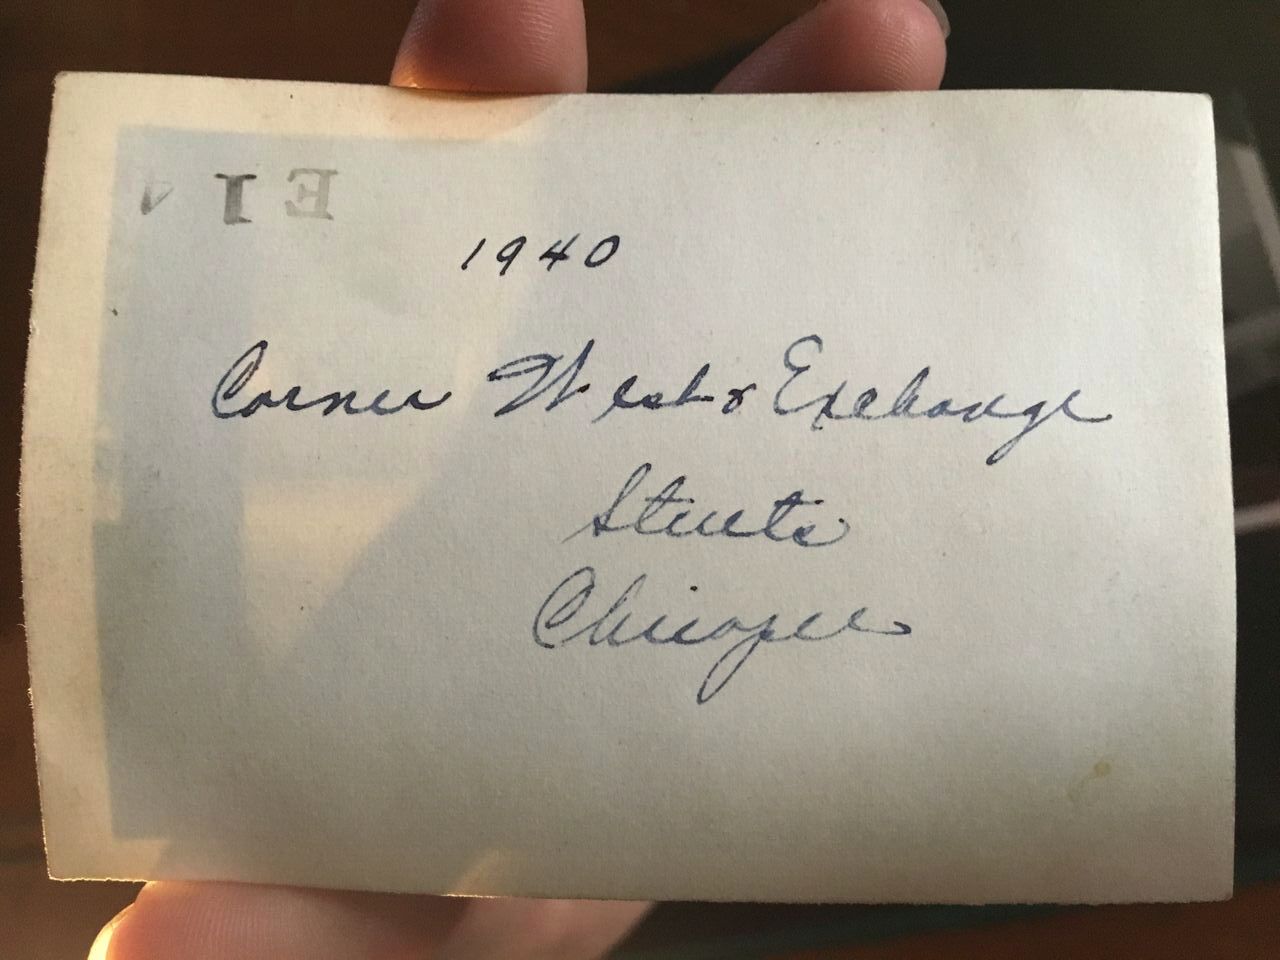 E14
1940
Corner West & Exchange
Streets
Chicopee